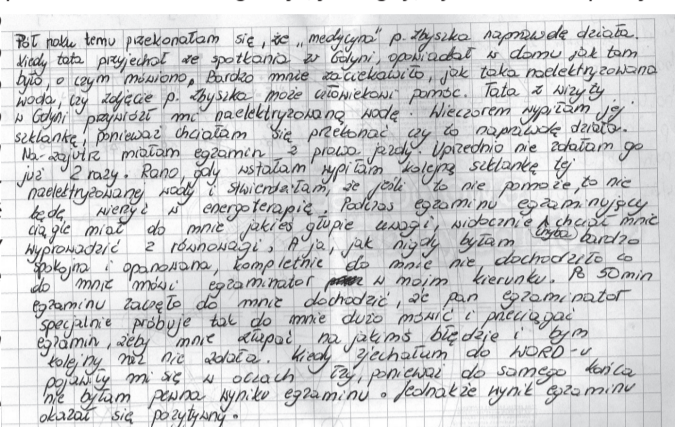 Pół roku temu przekonałam się, że „medycyna” p. Zbyszka naprawdę działa.
Kiedy tata przyjechał ze spotkania w Gdyni, opowiadał w domu jak tam
było, o czym mówiono. Bardzo mnie zaciekawiło, jak taka naelektryzowana
woda, czy zdjęcie p. Zbyszka może człowiekowi pomóc. Tata z wizyty
w Gdyni przywiózł mi naelektryzowaną wodę. Wieczorem wypiłam jej
szklankę, ponieważ chciałam się przekonać czy to naprawdę działa.
Na zajutrz miałam egzamin z prawa jazdy. Uprzednio nie zdałam go
już 2 razy. Rano, gdy wstałam wypiłam kolejną szklankę tej
naelektryzowanej wody i stwierdziłam, że jeśli to nie pomoże, to nie
będę wierzyć w energoterapię. Podczas egzaminu egzaminujący
ciągle miał do mnie jakieś głupie uwagi, widocznie chyba chciał mnie
wyprowadzić z równowagi. A ja, jak nigdy byłam bardzo
spokojna i opanowana, kompletnie do mnie nie dochodziło co
do mnie mówi egzaminator w moim kierunku. Po 50 min
egzaminu zaczęło do mnie dochodzić, że pan egzaminator
specjalnie próbuje tak do mnie dużo mówić i przeciągać
egzamin, żeby mnie złapać na jakimś błędzie i bym
kolejny raz nie zdała. Kiedy zjechałam do WORD-u
pojawiły mi się w oczach łzy, ponieważ do samego końca
nie byłam pewna wyniku egzaminu. Jednakże wynik egzaminu
okazał się pozytywny.